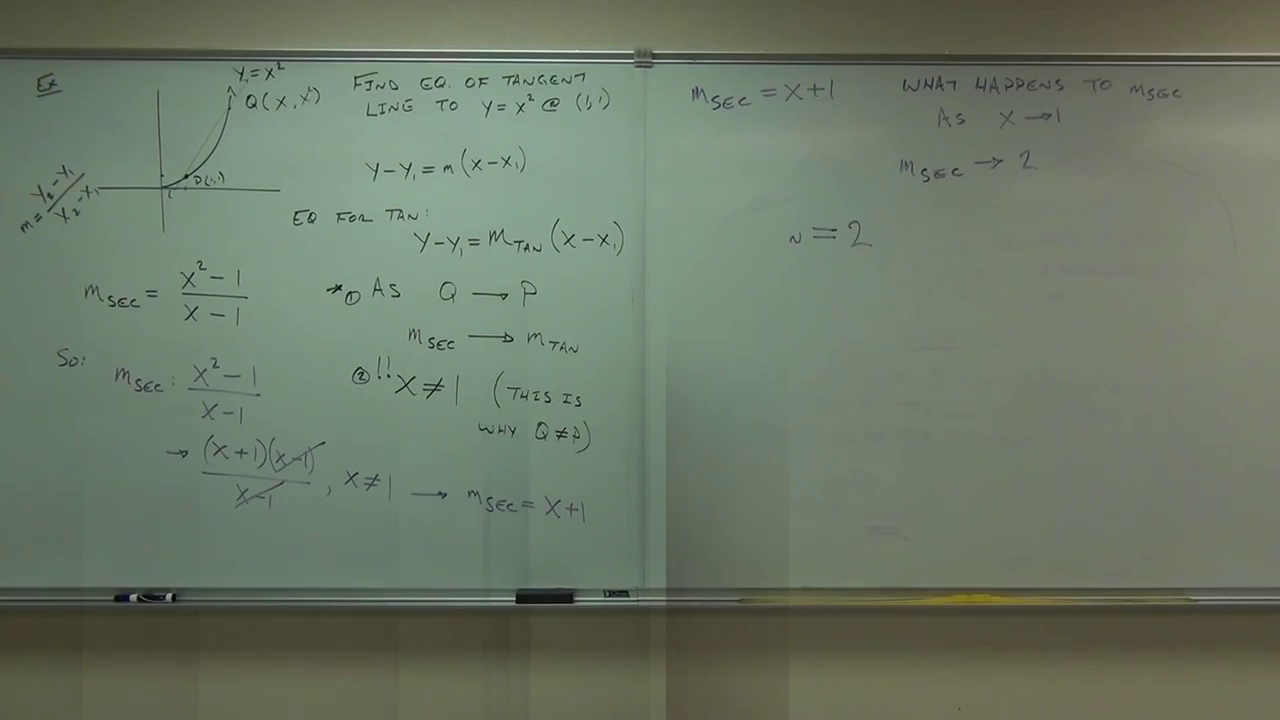 Ex
y = x²
Q(x, x²)
P(1,1)
1
m = y₂-y₁ / x₂-x₁
FIND EQ. OF TANGENT
LINE TO y = x² @ (1,1)
y-y₁ = m(x-x₁)
EQ FOR TAN:
y-y₁ = m_TAN (x-x₁)
m_SEC = x²-1 / x-1
* ① AS Q → P
m_SEC → m_TAN
So:
m_SEC: x²-1 / x-1
② !! x ≠ 1 (THIS IS
WHY Q≠P)
→ (x+1)(x-1) / x-1 , x≠1 → m_SEC = x+1
m_SEC = x+1
WHAT HAPPENS TO m_SEC
AS x → 1
m_SEC → 2
= 2